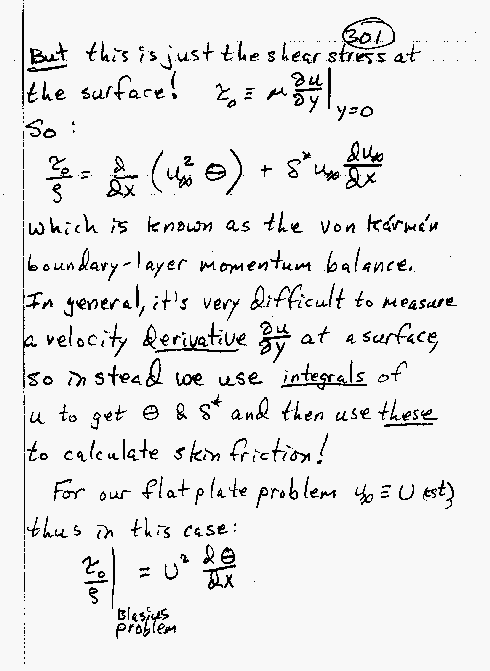 301
But this is just the shear stress at
the surface! τ₀ ≡ μ ∂u/∂y |y=0
So:
τ₀/ρ = d/dx (u∞² θ) + δ* u∞ du∞/dx
which is known as the von Kármán
boundary-layer momentum balance.
In general, it's very difficult to measure
a velocity derivative ∂u/∂y at a surface,
so instead we use integrals of
u to get θ & δ* and then use these
to calculate skin friction!
For our flat plate problem u∞ ≡ U (cst);
thus in this case:
τ₀/ρ | = U² dθ/dx
Blasius
problem